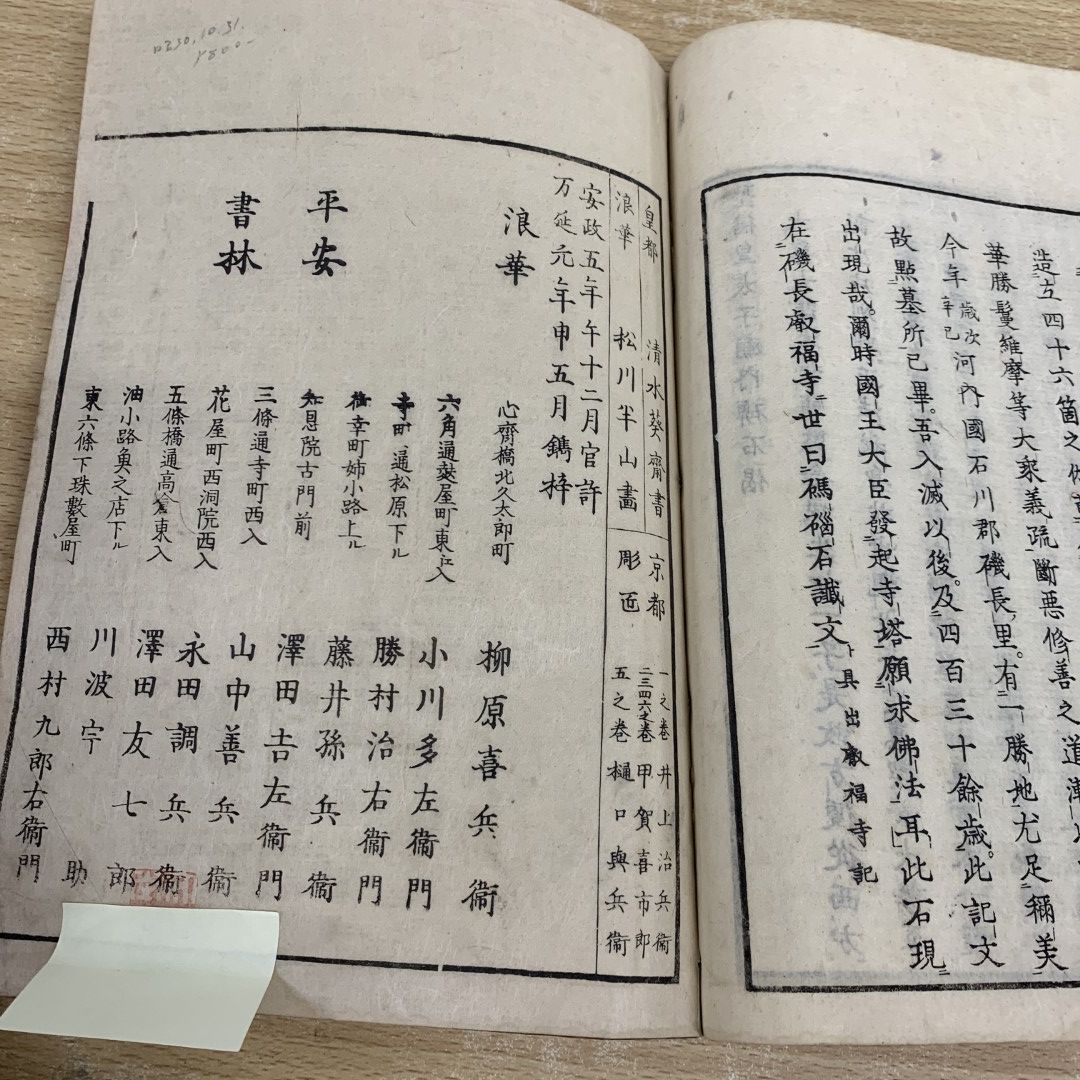 造立四十六箇之伽藍
華勝鬘維摩等大乘義疏斷悪修善之道漸
今年歳次辛巳河內國石川郡磯長里有一勝地尤足稱美
故點墓所已畢吾入滅以後及四百三十餘歳此記文
出現哉爾時國王大臣發起寺塔願求佛法耳此石現
在磯長叡福寺世曰碼碯石讖文具出叡福寺記
皇都 清水葵齋書
浪華 松川半山畫
京都 彫匠
一之巻 井上治兵衞
二三四六之巻 甲賀喜市郎
五之巻 樋口與兵衞
安政五年午十二月官許
万延元年申五月鐫梓
浪華 心齊橋北久太郎町 柳原喜兵衞
平安 六角通麩屋町東江入 小川多左衞門
寺町通松原下ル 勝村治右衞門
御幸町姉小路上ル 藤井孫兵衞
知恩院古門前 澤田吉左衞門
三條通寺町西入 山中善兵衞
書林 花屋町西洞院西入 永田調兵衞
五條橋通高倉東入 澤田友七郎
油小路魚之店下ル 川波宇助
東六條下珠數屋町 西村九郎右衞門